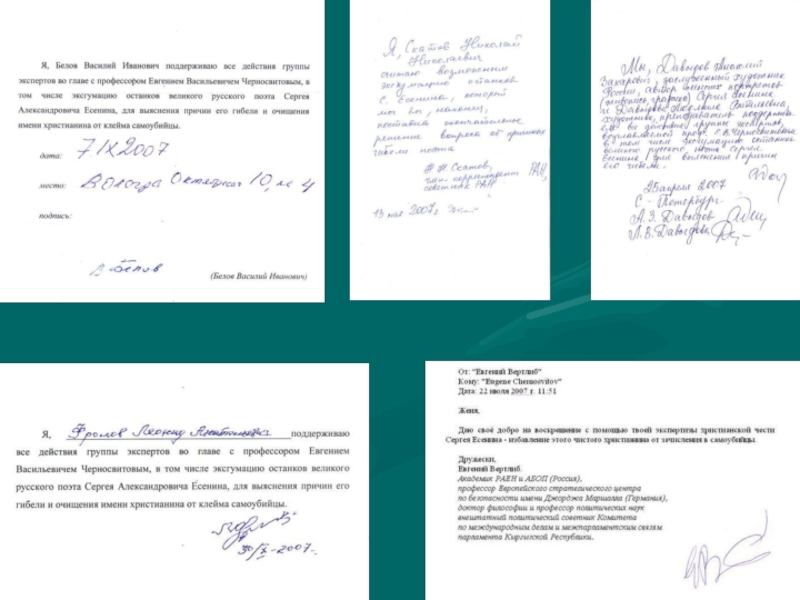 Я, Белов Василий Иванович поддерживаю все действия группы
экспертов во главе с профессором Евгением Васильевичем Черносвитовым, в
том числе эксгумацию останков великого русского поэта Сергея
Александровича Есенина, для выяснения причин его гибели и очищения
имени христианина от клейма самоубийцы.
дата: 7 IX 2007
место: Вологда Октябрьск 10, кв 4
подпись:
В Белов
(Белов Василий Иванович)
Я, Скатов Николай
Николаевич
считаю возможным
эксгумацию останков
С. Есенина, которой
мог бы, наконец,
поставить окончательное
решение вопроса о причинах
гибели поэта
Н Н Скатов,
член-корреспондент РАН,
советник РАН
13 мая 2007 г.
Мы, Давыдов Анатолий
Захарович, заслуженный художник
России, автор портретов
(живопись, графика) Сергея Есенина
и Давыдова Витальевна,
художник, преподаватель поддержи-
ваем все действия группы экспертов,
возглавляемой проф. Е.В. Черносвитовым
в том числе эксгумацию останков
великого русского поэта Сергея
Есенина для выяснения причин
его гибели.
25 апреля 2007
С-Петербург
А. З. Давыдов
Л. В. Давыдова
Я, Фролов Леонид Анатольевич поддерживаю
все действия группы экспертов во главе с профессором Евгением
Васильевичем Черносвитовым, в том числе эксгумацию останков великого
русского поэта Сергея Александровича Есенина, для выяснения причин его
гибели и очищения имени христианина от клейма самоубийцы.
30/X-2007г.
От: "Евгений Вертлиб"
Кому: "Eugene Chernosvitov"
Дата: 22 июля 2007 г. 11:51
Женя,
Даю своё добро на воскрешение с помощью твоей экспертизы христианской чести
Сергея Есенина - избавление этого чистого христианина от зачисления в самоубийцы.
Дружески,
Евгений Вертлиб.
Академик РАЕН и АБОП (Россия),
профессор Европейского стратегического центра
по безопасности имени Джорджа Маршалла (Германия),
доктор философии и профессор политических наук
внештатный политический советник Комитета
по международным делам и межпарламентским связям
парламента Кыргызской Республики.